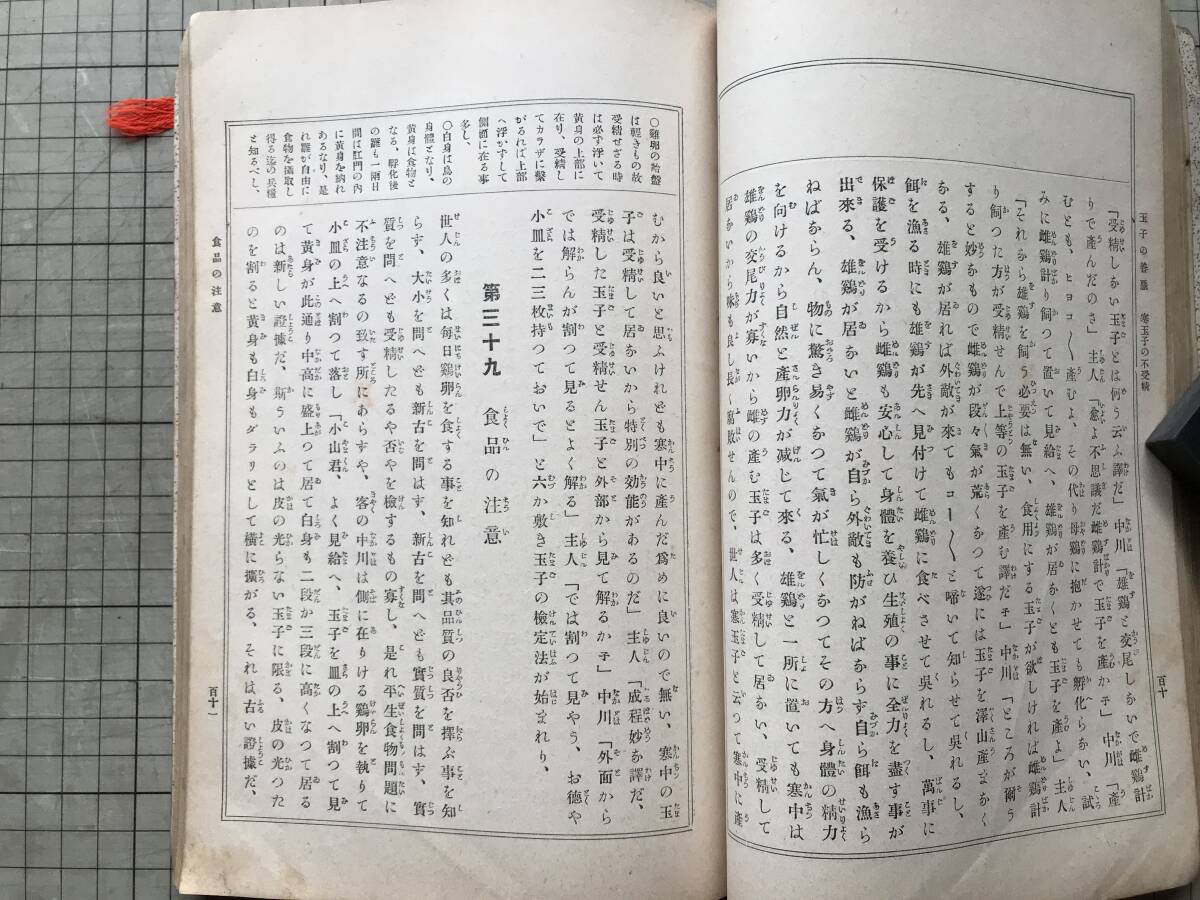 玉子の巻
寒玉子の不受精
百十
「受精しない玉子とは何う云ふ譯だ」中川「雄鷄と交尾しないで雌鷄計
りで產んだのさ」主人「愈よ不思議だ雌鷄計で玉子を產かネ」中川「產
むとも、ヒヨコ〳〵產むよ、その代り母鷄に抱かせても孵化らない、試
みに雌鷄計り飼つて置いて見給へ、雄鷄が居なくとも玉子を產よ」主人
「それなら雄鷄を飼う必要は無い、食用にする玉子が欲しければ雌鷄計
り飼つた方が受精せんで上等の玉子を產む譯だネ」中川「ところが爾う
すると妙なもので雌鷄が段々氣が荒くなつて遂には玉子を澤山產まなく
なる、雄鷄が居れば外敵が來てもコー〳〵と啼いて知らせて吳れるし、
餌を漁る時にも雄鷄が先へ見付けて雌鷄に食べさせて吳れるし、萬事に
保護を受けるから雌鷄も安心して身體を養ひ生殖の事に全力を盡す事が
出來る、雄鷄が居ないと雌鷄が自ら外敵も防がねばならず自ら餌も漁ら
ねばならん、物に驚き易くなつて氣が忙しくなつてその方へ身體の精力
を向けるから自然と產卵力が減じて來る、雄鷄と一所に置いても寒中は
雄鷄の交尾力が寡いから雌の產む玉子は多く受精して居ない、受精して
居ないから味も良し長く腐敗せんので、世人は寒玉子と云つて寒中に產
〇雞卵の胎盤
は輕きもの故
受精せざる時
は必ず浮いて
黄身の上部に
在り、受精し
てカラザに繫
がるれば上部
へ浮かずして
側面に在る事
多し、
〇白身は鳥の
身體となり、
黄身は食物と
なる、孵化後
の雛も一兩日
間は肛門の內
に黄身を納れ
あるなり、是
れ雛が自由に
食物を攝取し
得る迄の兵糧
と知るべし、
むから良いと思ふけれども寒中に產んだ爲めに良いので無い、寒中の玉
子は受精して居ないから特別の効能があるのだ」主人「成程妙な譯だ、
受精した玉子と受精せん玉子と外部から見て解るかネ」中川「外面から
では解らんが割つて見るとよく解る」主人「では割つて見やう、お德や
小皿を二三枚持つておいで」と六か敷き玉子の檢定法が始まれり、
第三十九 食品の注意
世人の多くは每日鷄卵を食する事を知れども其品質の良否を擇ぶ事を知
らず、大小を問へども新古を問はず、新古を問へども實質を問はず、實
質を問へども受精したるや否やを檢するもの寡し、是れ平生食物問題に
不注意なるの致す所にあらずや、客の中川は側に在りける鷄卵を執りて
小皿の上へ割つて落し「小山君、よく見給へ、玉子を皿の上へ割つて見
て黄身が此通り中高に盛上つて居て白身も二段か三段に高くなつて居る
のは新しい證據だ、斯ういふのは皮の光らない玉子に限る、皮の光つた
のを割ると黄身も白身もダラリとして橫に擴がる、それは古い證據だ、
食品の注意
百十一